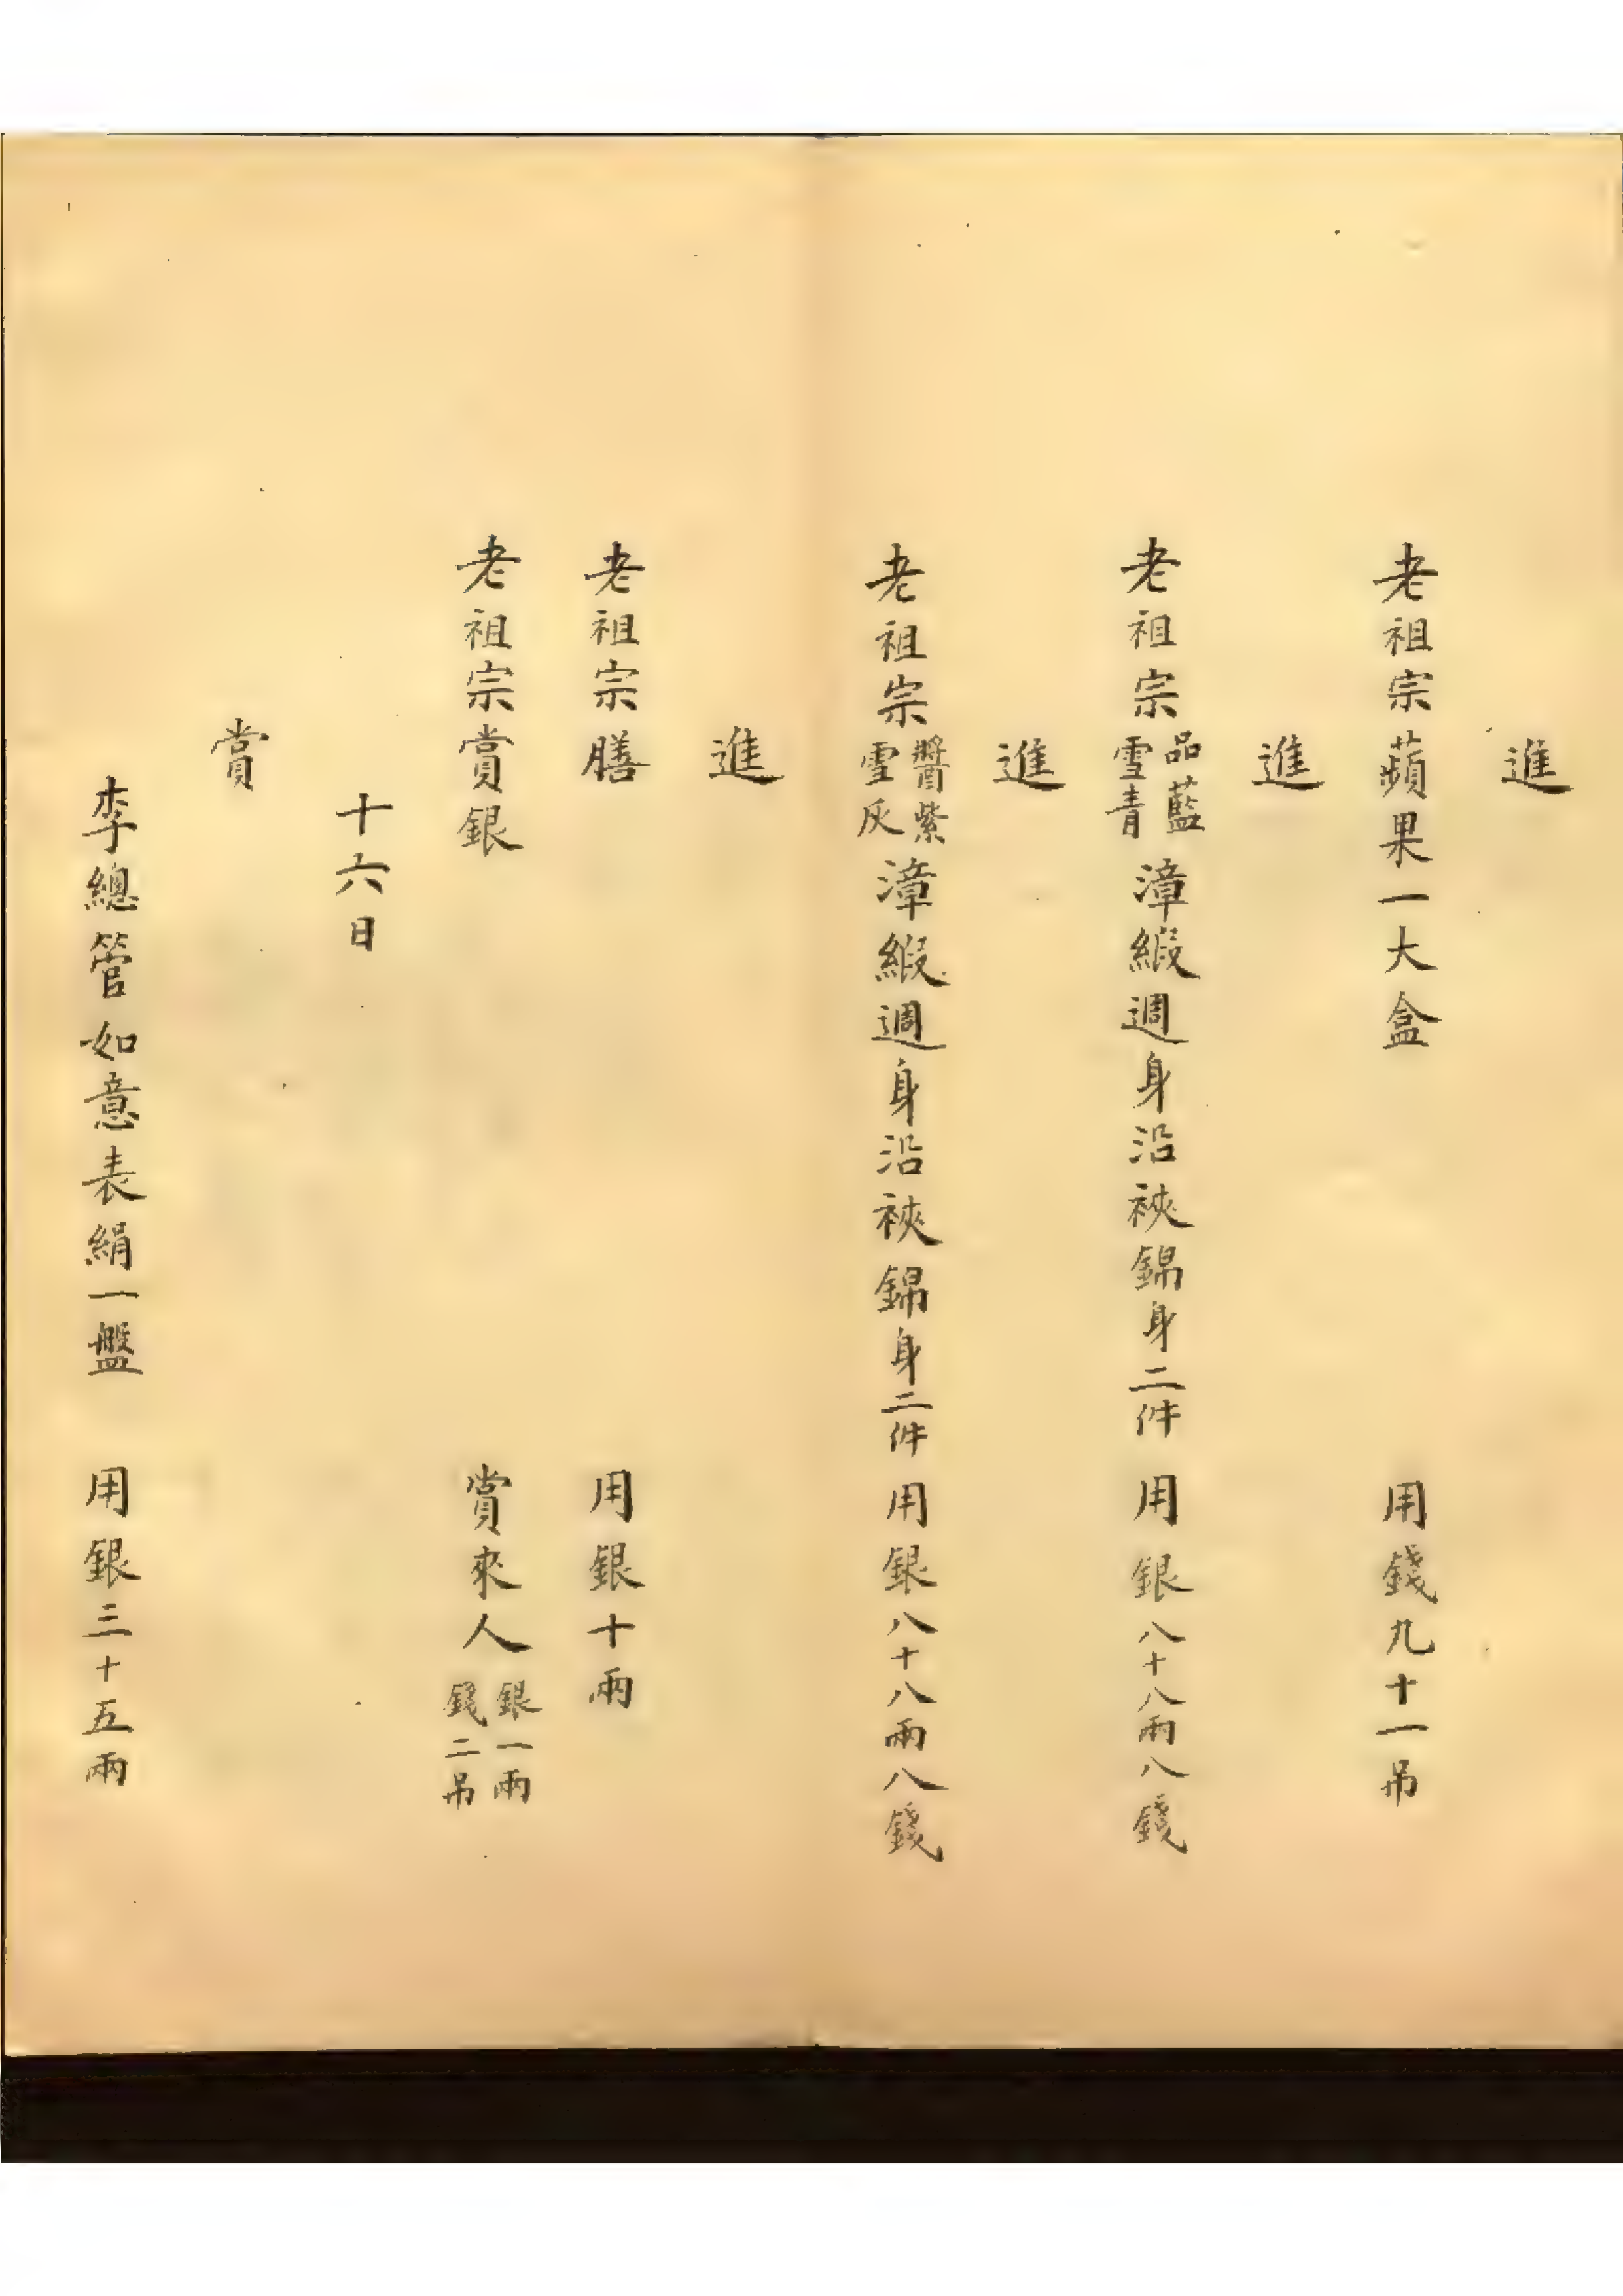 進
老祖宗蘋果一大盒 用錢九十一吊
進
老祖宗品藍雪青漳緞週身沿裌錦身二件 用銀八十八兩八錢
進
老祖宗醬紫雪灰漳緞週身沿裌錦身二件 用銀八十八兩八錢
進
老祖宗膳 用銀十兩
老祖宗賞銀 賞來人銀一兩錢二吊
十六日
賞
李總管如意表絹一盤 用銀三十五兩